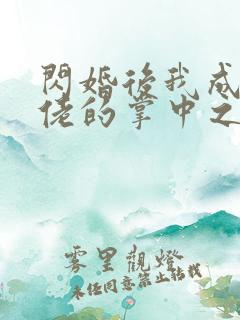 閃婚後我成
佬的掌中之
雾里觀燈
未任同意禁止轉載